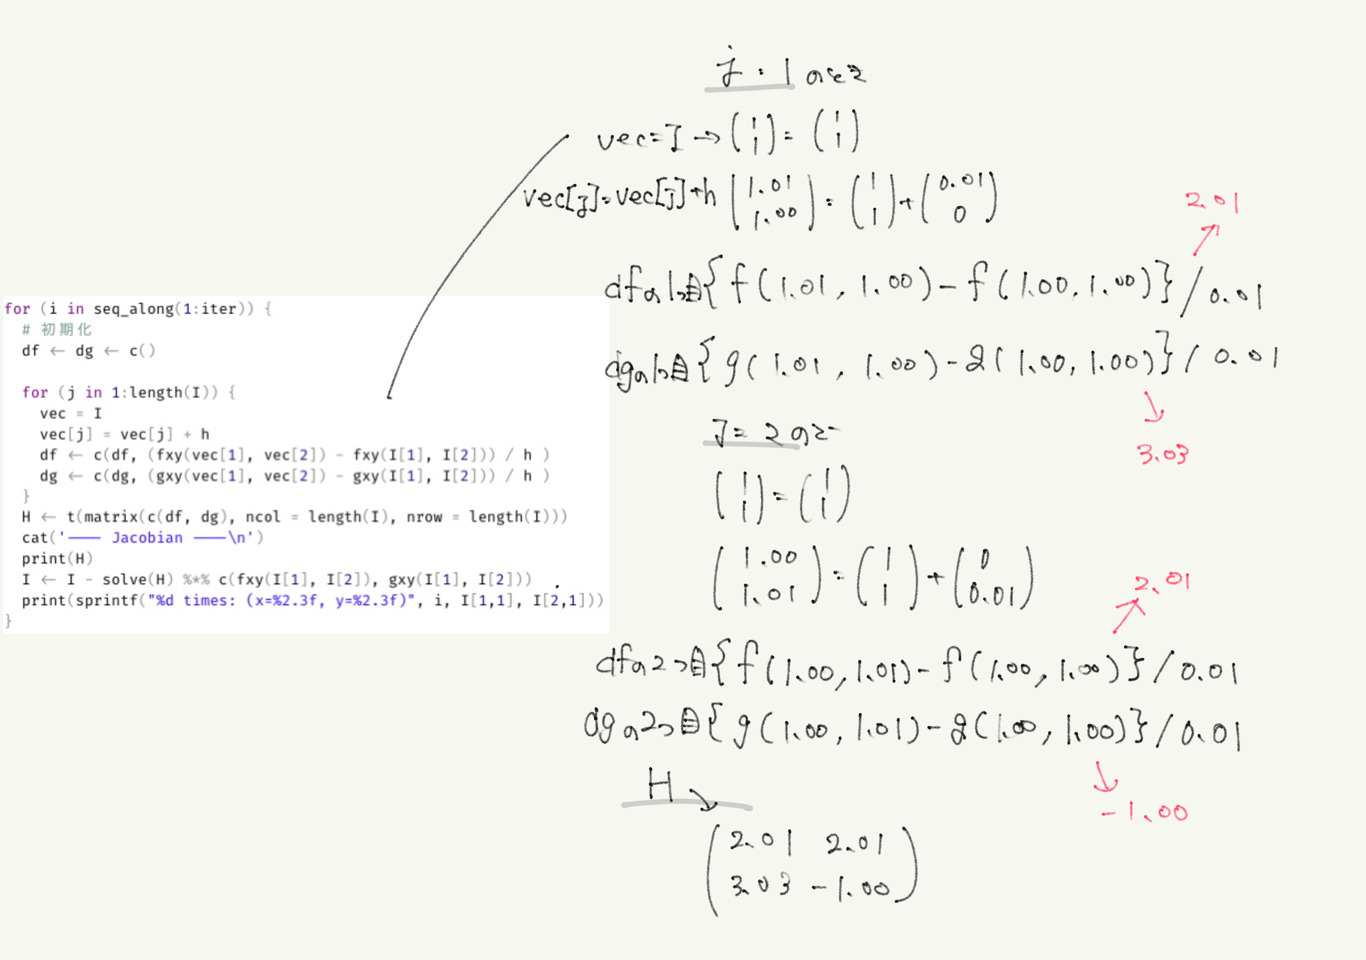 for (i in seq_along(1:iter)) {
# 初期化
df ← dg ← c()
for (j in 1:length(I)) {
vec = I
vec[j] = vec[j] + h
df ← c(df, (fxy(vec[1], vec[2]) - fxy(I[1], I[2])) / h )
dg ← c(dg, (gxy(vec[1], vec[2]) - gxy(I[1], I[2])) / h )
}
H ← t(matrix(c(df, dg), ncol = length(I), nrow = length(I)))
cat('—— Jacobian ——\n')
print(H)
I ← I - solve(H) %*% c(fxy(I[1], I[2]), gxy(I[1], I[2]))
print(sprintf("%d times: (x=%2.3f, y=%2.3f)", i, I[1,1], I[2,1]))
}
j = 1 のとき
vec=I → (1 1) = (1 1)
vec[j]=vec[j]+h (1.01 1.00) = (1 1) + (0.01 0)
2.01
dfの1つ目{f(1.01, 1.00)-f(1.00, 1.00)}/0.01
dgの1つ目{g(1.01, 1.00)-g(1.00, 1.00)}/0.01
3.03
J = 2 のとき
(1 1) = (1 1)
(1.00 1.01) = (1 1) + (0 0.01)
2.01
dfの2つ目{f(1.00, 1.01)-f(1.00, 1.00)}/0.01
dgの2つ目{g(1.00, 1.01)-g(1.00, 1.00)}/0.01
-1.00
H
2.01 2.01
3.03 -1.00